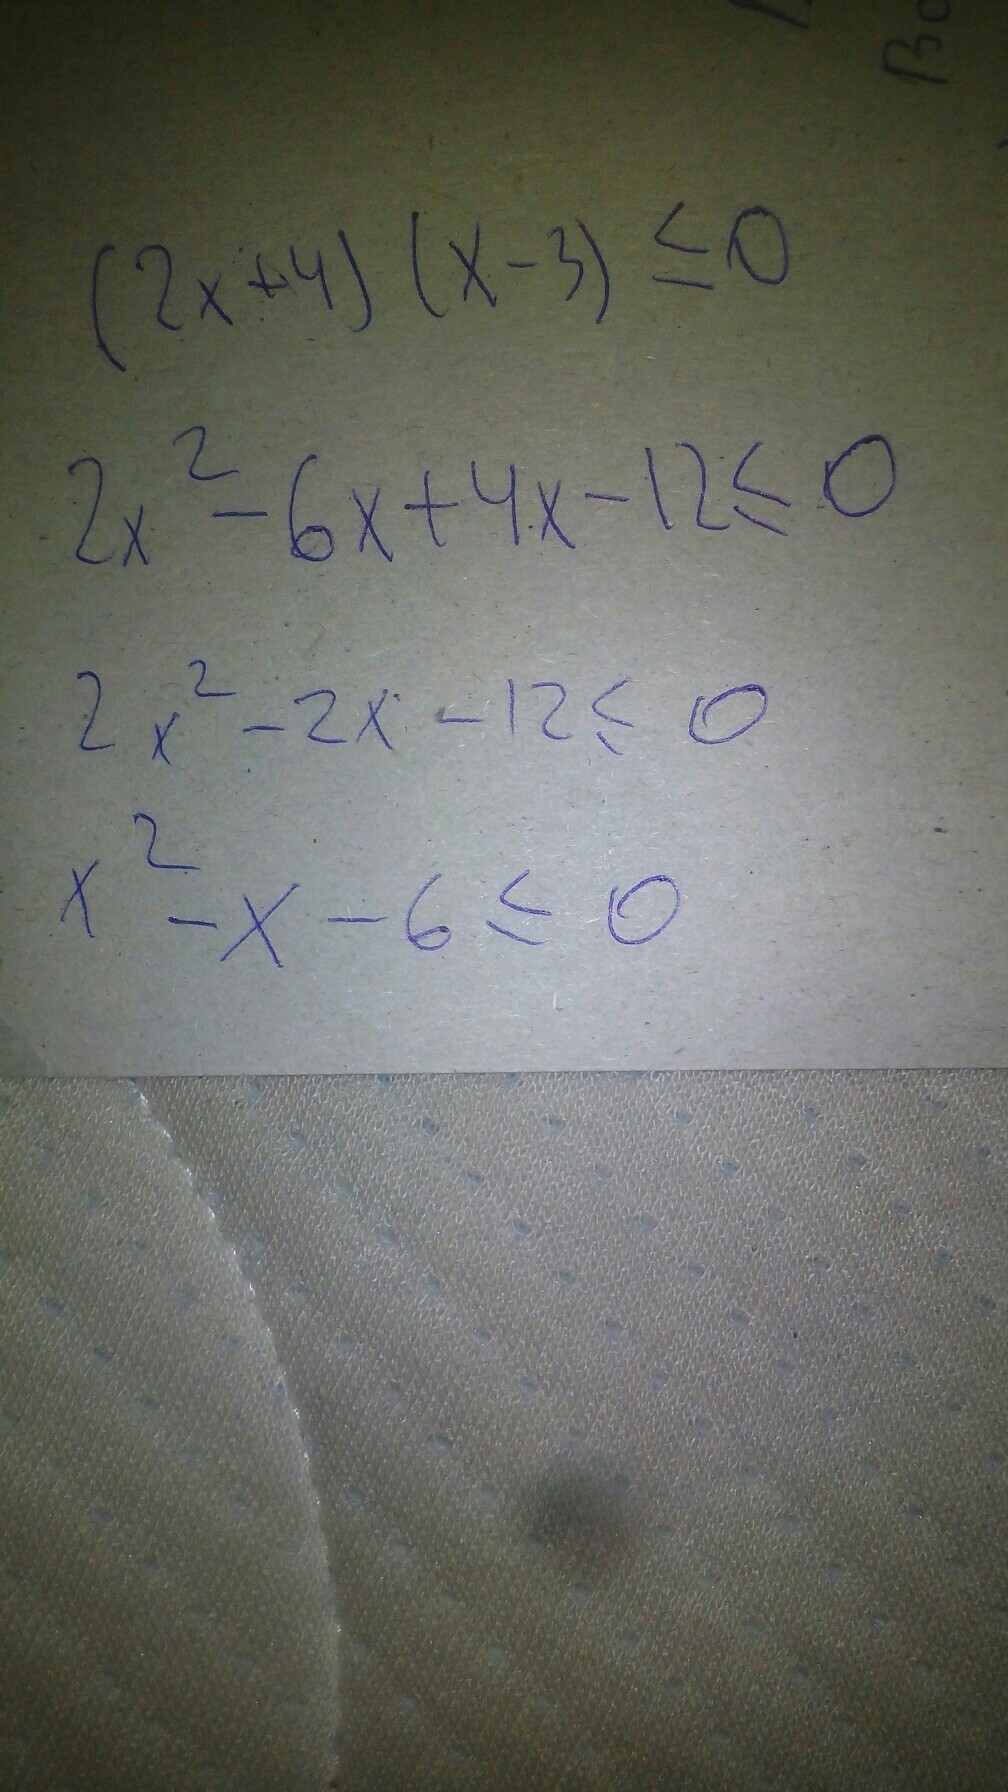 (2x+4) (x-3) ≤ 0
2x² - 6x + 4x - 12 ≤ 0
2x² - 2x - 12 ≤ 0
x² - x - 6 ≤ 0